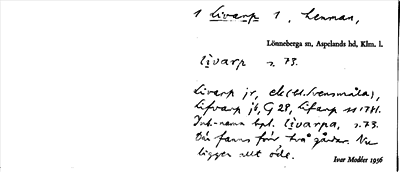 1 Livarp 1, hemman,
Lönneberga sn, Aspelands hd, Klm. l.
livarp s. 73.
Livarp jr, ek (st. Svensmåla),
Lifvarp jb, G 28, Lifarp
Inb.-namn bpl. livarpa, s. 73.
Där fanns förr två gårdar. Nu
ligger allt öde.
Ivar Modéer 1936